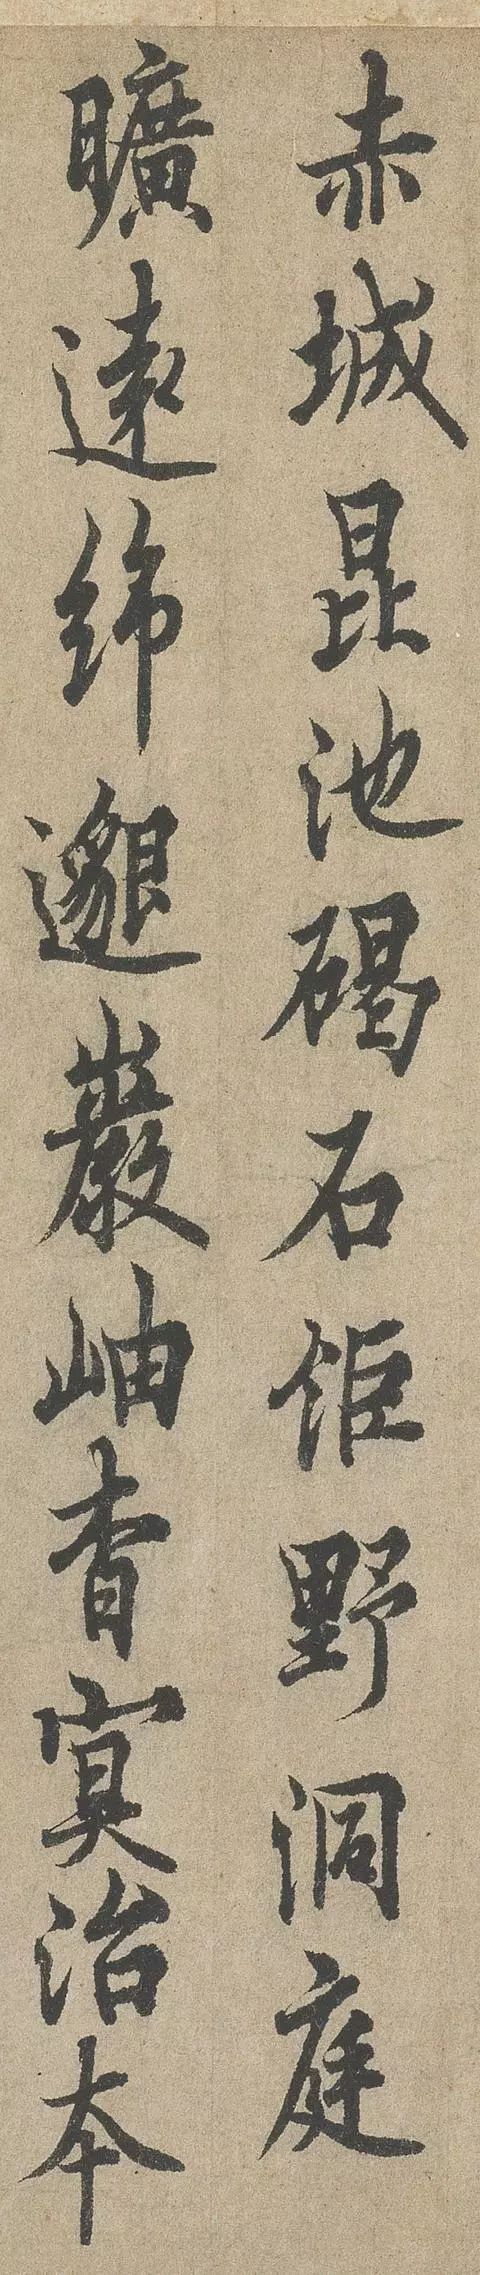 赤城昆池碣石鉅野洞庭
曠遠綿邈巖岫杳冥治本